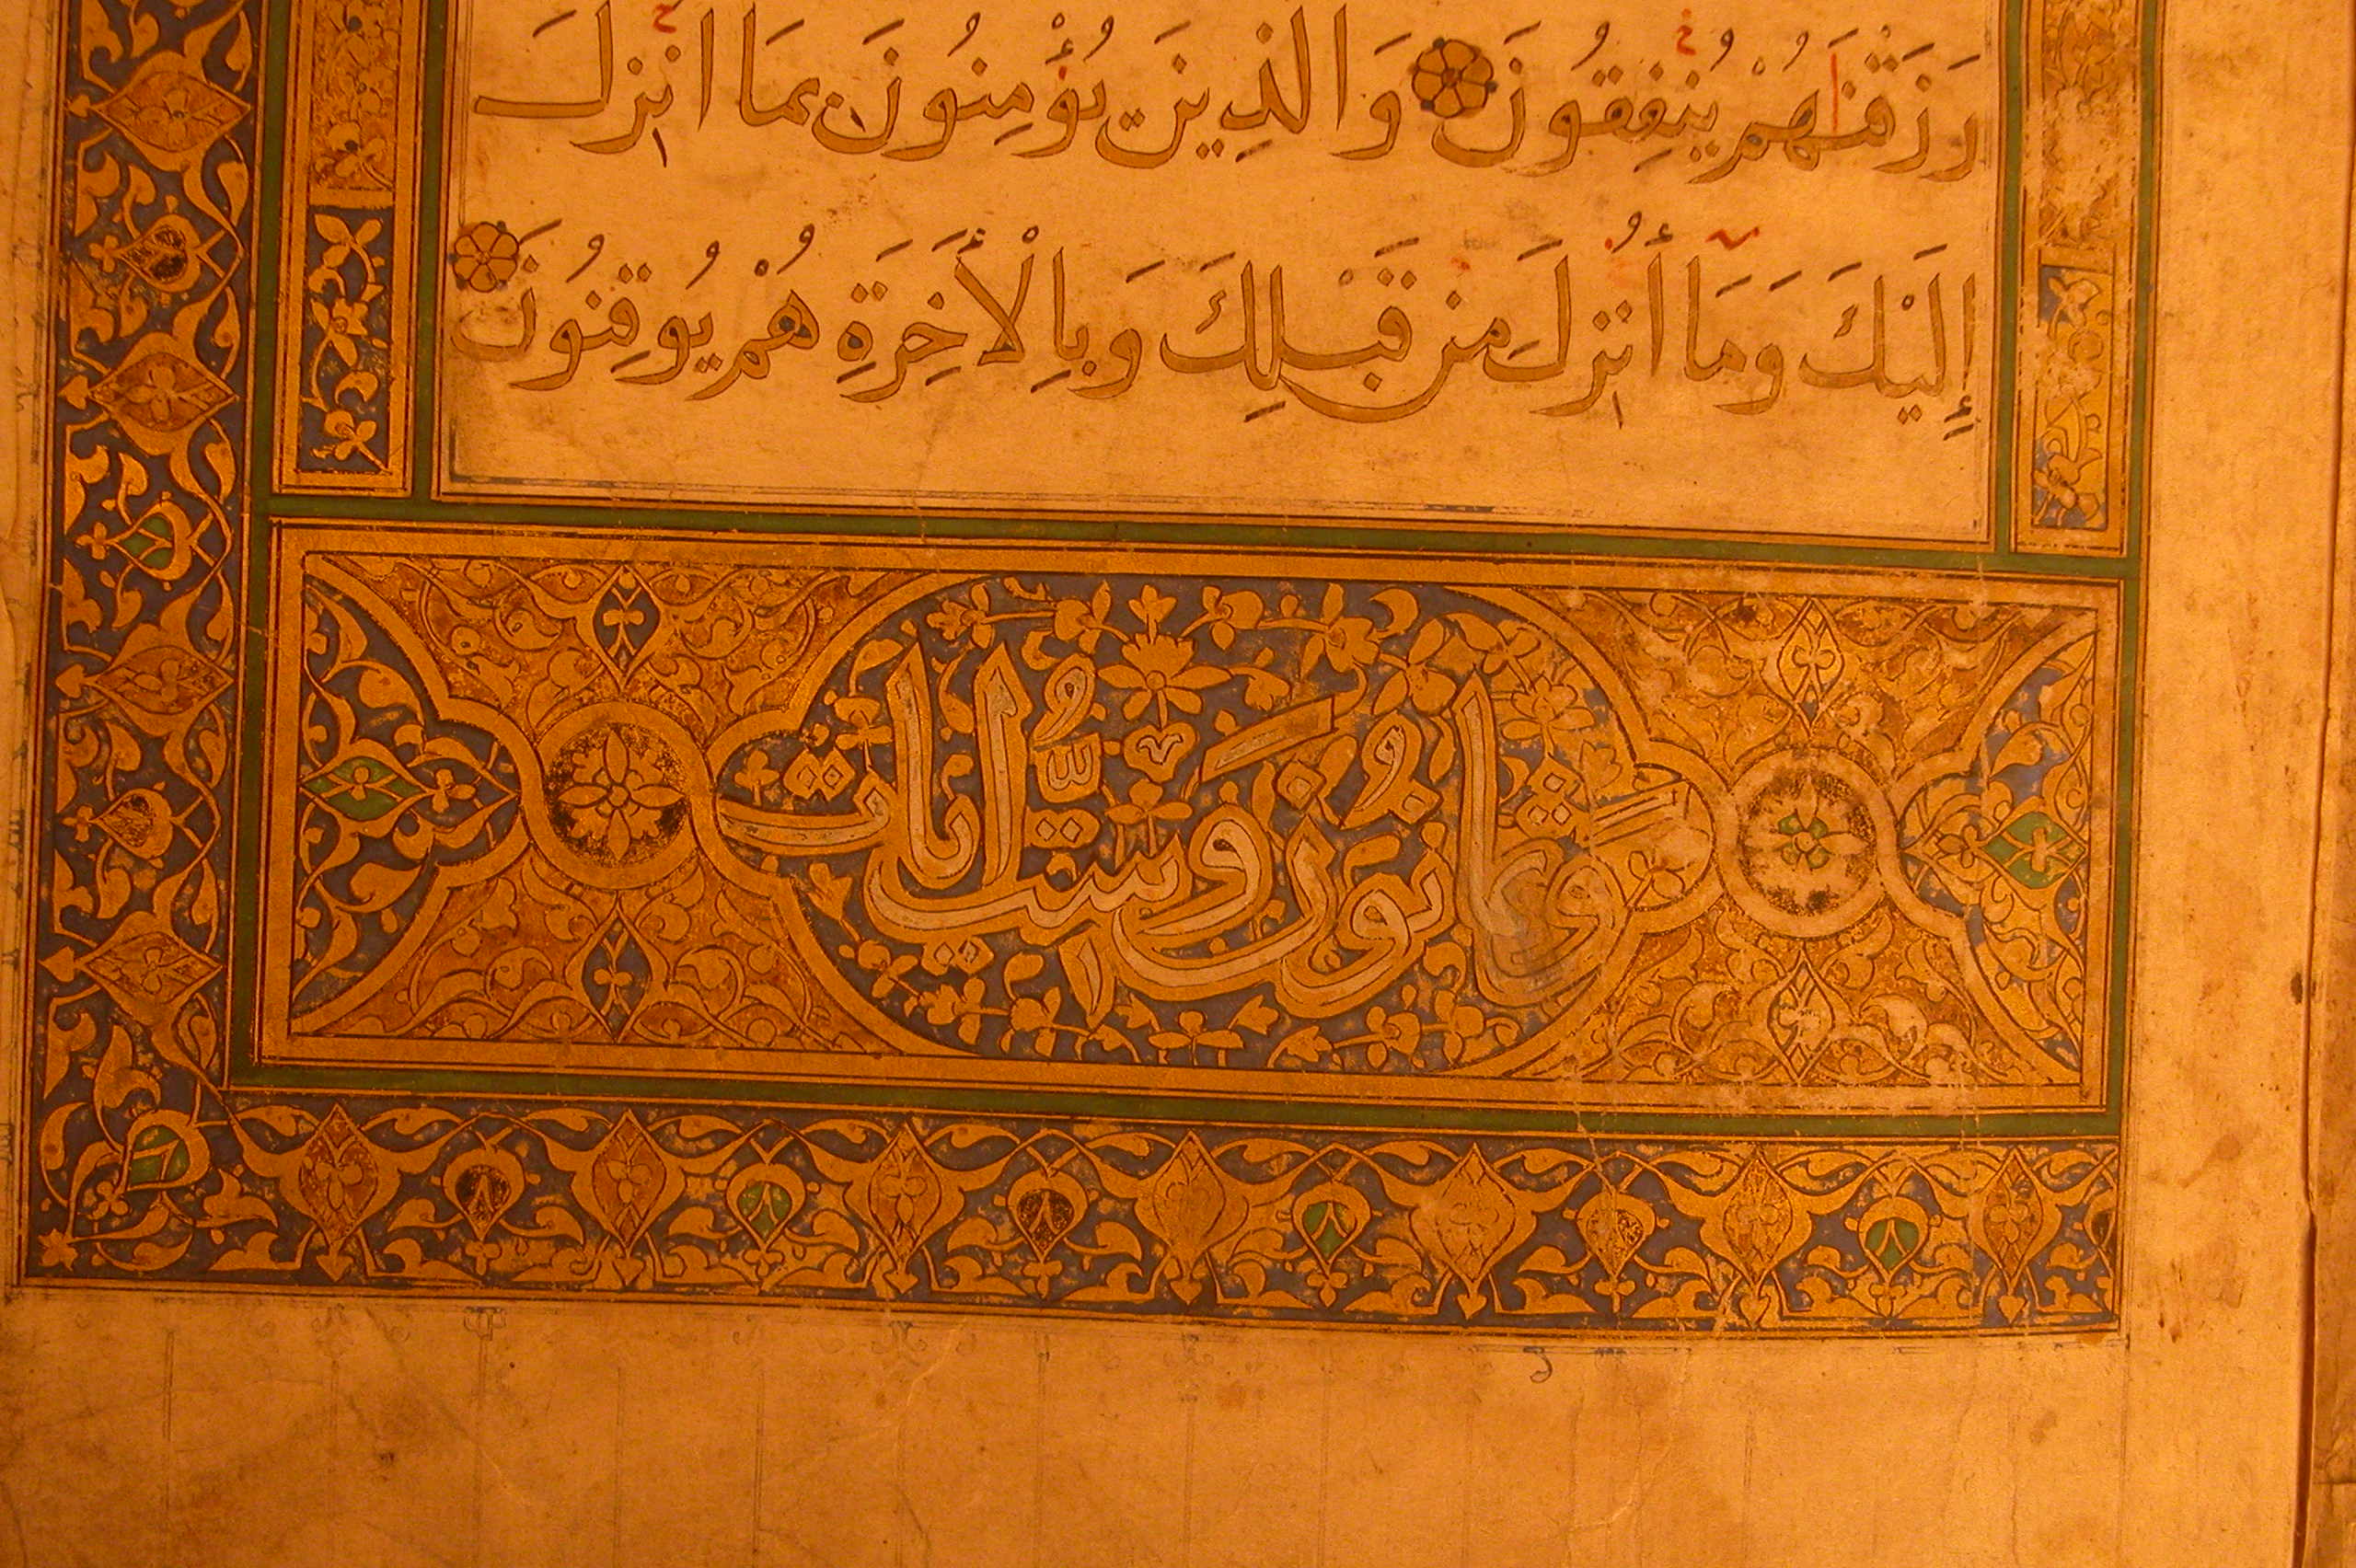 رَزَقْنَٰهُمْ يُنْفِقُونَ وَالَّذِينَ يُؤْمِنُونَ بِمَا أُنْزِلَ
إِلَيْكَ وَمَا أُنْزِلَ مِنْ قَبْلِكَ وَبِالْأَخِرَةِ هُمْ يُوقِنُونَ
وثمانون وست آيات